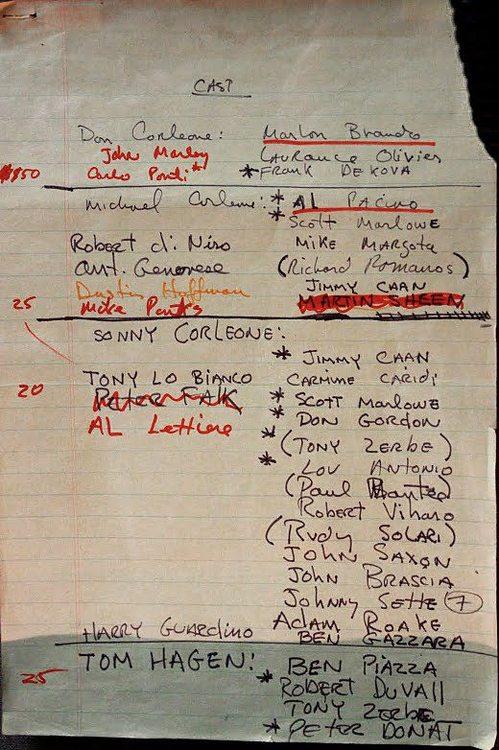 CAST
Don Corleone: Marlon Brando
John Marley Laurance Olivier
$150 Carlo Ponti* *FRANK DE KOVA
Michael Corleone: * AL PACINO
* Scott MARLOWE
Robert di Niro MIKE MARGOTA
Ant. Genovese (Richard Romanos)
Dustin Hoffman JIMMY CAAN
25 Mike Parks MARTIN SHEEN
SONNY CORLEONE:
* JIMMY CAAN
TONY LO BIANCO CARMINE CARIDI
20 PETER FALK * SCOTT MARLOWE
AL Lettiere * DON GORDON
* (TONY ZERBE)
* LOU ANTONIO
(Paul Banteo)
ROBERT Viharo
(RUDY SOLARI)
JOHN SAXON
JOHN BRASCIA
Johnny SETTE (7)
Adam ROAKE
HARRY GUARDINO BEN GAZZARA
TOM HAGEN: BEN PIAZZA
25 * ROBERT DUVALL
TONY ZERBE
* PETER DONAT